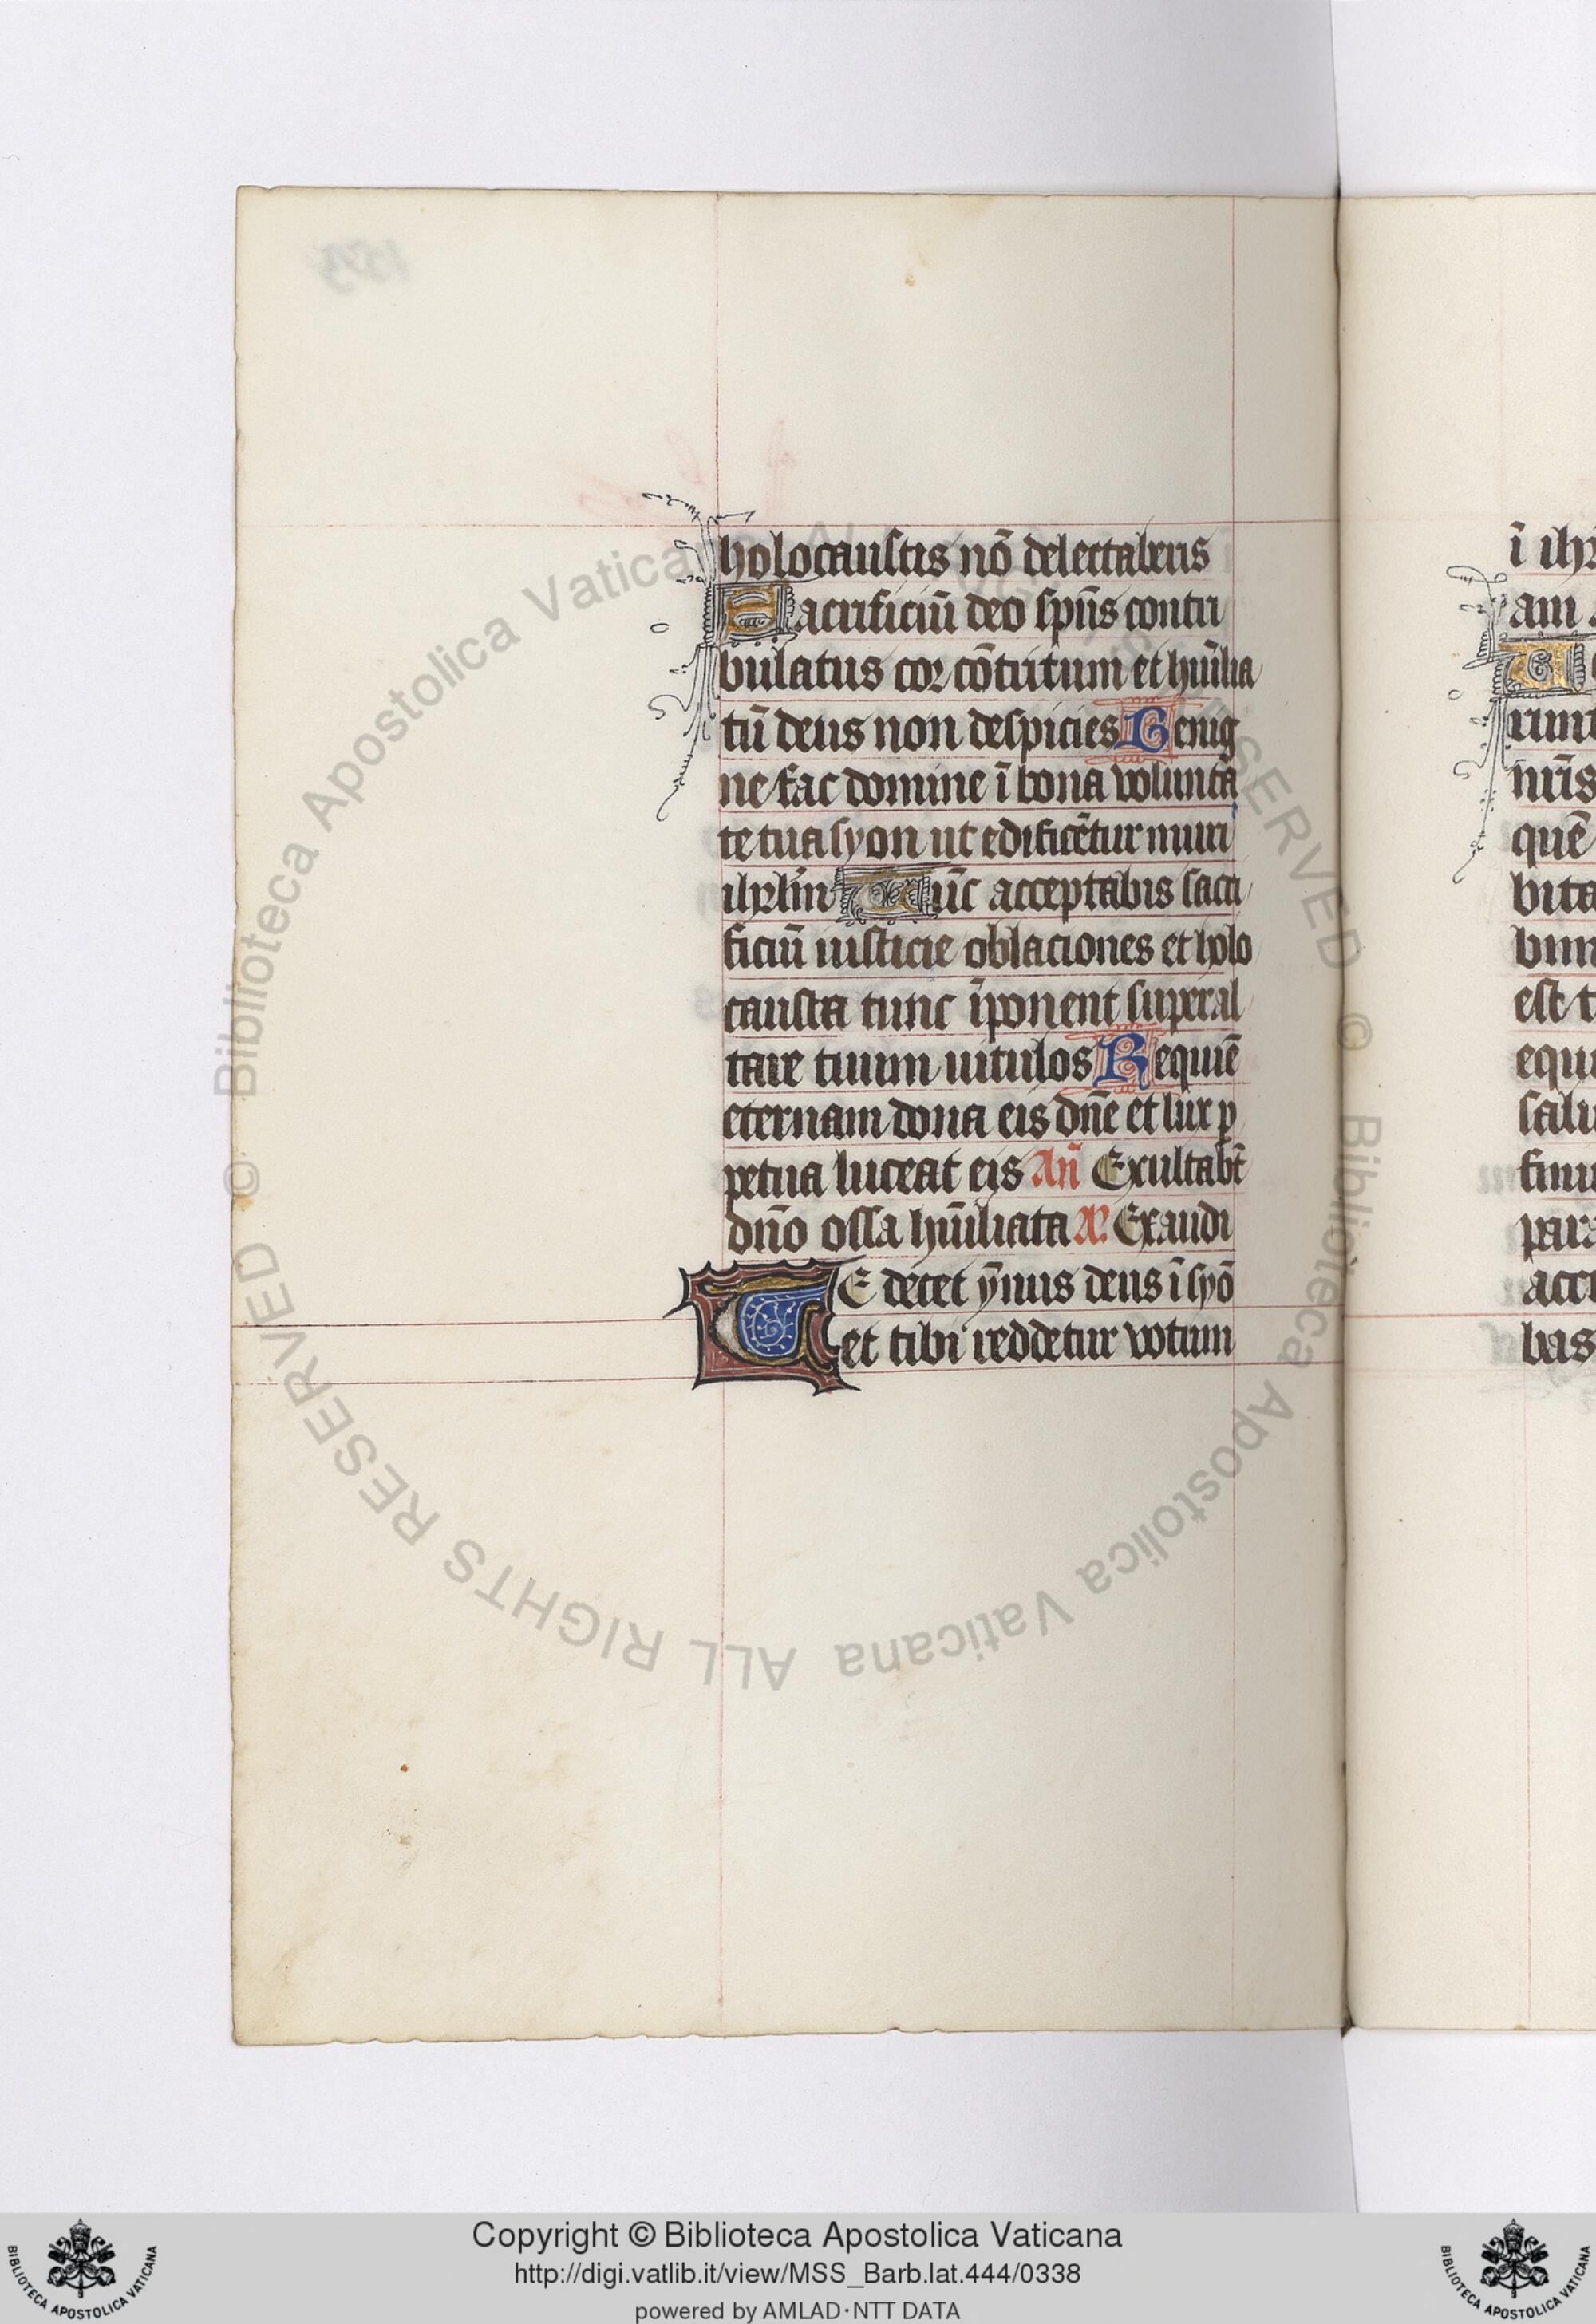 holocaustis nō delectaberis
Sacrificiū deo spūs contri
bulatus cor cōtritum et hūilia
tū deus non despicies Benig
ne fac domine ī bona volunta
te tua syon ut edificētur muri
ihrlm̄ Tūc acceptabis sacri
ficiū iusticie oblaciones et holo
causta tunc īponent super al
tare tuum uitulos Requiē
eternam dona eis dn̄e et lux ꝑ
petua luceat eis An̄ Exultabt̄
dn̄o ossa hūiliata Exaudi
TE decet ȳnus deus ī syō
et tibi reddetur votum
ī ihr
am
runt
nr̄is
quē
bita
bun
est t
equi
salu
finiu
para
accı
bas
© Biblioteca Apostolica Vaticana ALL RIGHTS RESERVED © Biblioteca Apostolica Vaticana ALL RIGHTS RESERVED
Copyright © Biblioteca Apostolica Vaticana
http://digi.vatlib.it/view/MSS_Barb.lat.444/0338
powered by AMLAD·NTT DATA
BIBLIOTECA APOSTOLICA VATICANA
BIBLIOTECA APOSTOLICA VATICANA